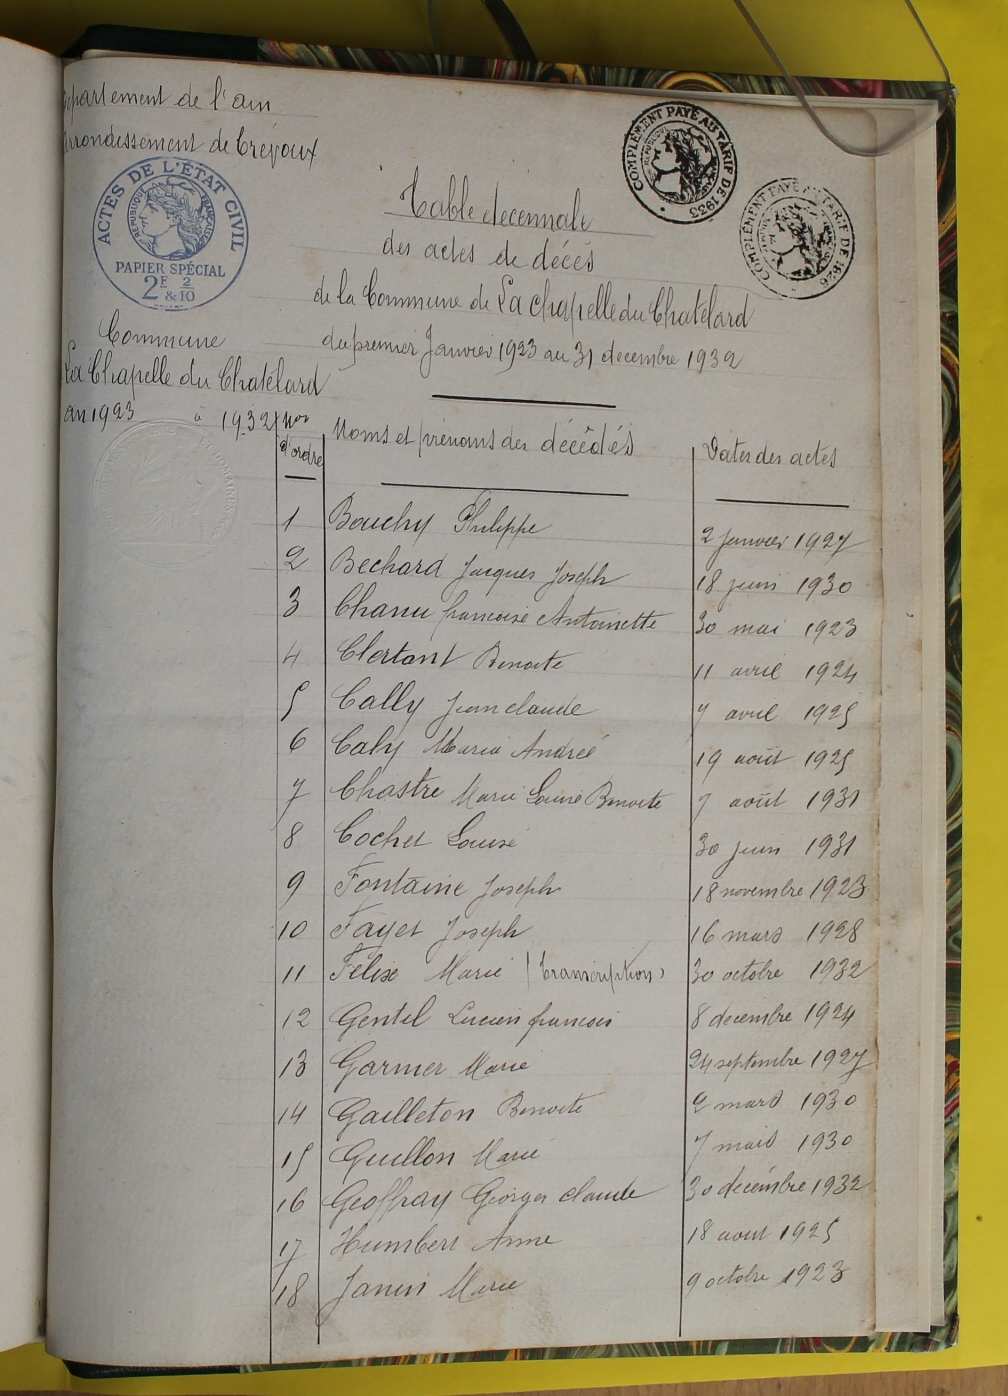 Département de l'ain
Arrondissement de Trévoux
ACTES DE L'ÉTAT CIVIL
RÉPUBLIQUE FRANÇAISE
PAPIER SPÉCIAL
2E 2/10 &
COMPLÉMENT PAYÉ AU TARIF DE 1933
COMPLÉMENT PAYÉ AU TARIF DE 1926
Table décennale
des actes de décès
de la Commune de La Chapelle du Chatélard
du premier Janvier 1923 au 31 decembre 1932
Commune
La Chapelle du Chatélard
an 1923 à 1932
Nos d'ordre
Noms et prénoms des décédés
Dates des actes
1 Bouchy Philippe 2 janvier 1927
2 Bechard Jacques Joseph 18 juin 1930
3 Chanu francoise Antoinette 30 mai 1923
4 Clertant Benoite 11 avril 1924
5 Cally Jean claude 7 avril 1925
6 Caly Maria Andreé 19 août 1925
7 Chastre Marie Louise Benoite 7 août 1931
8 Cochet Louise 30 juin 1931
9 Fontaine Joseph 18 novembre 1923
10 Fayet Joseph 16 mars 1928
11 Félix Marie (transcription) 30 octobre 1932
12 Gentil Lucien francois 8 decembre 1924
13 Garnier Marie 24 septembre 1927
14 Gailleton Benoite 2 mars 1930
15 Guillon Marie 7 mars 1930
16 Geoffray Georges claude 30 décembre 1932
17 Humbert Anne 18 aout 1925
18 Janin Marie 9 octobre 1923